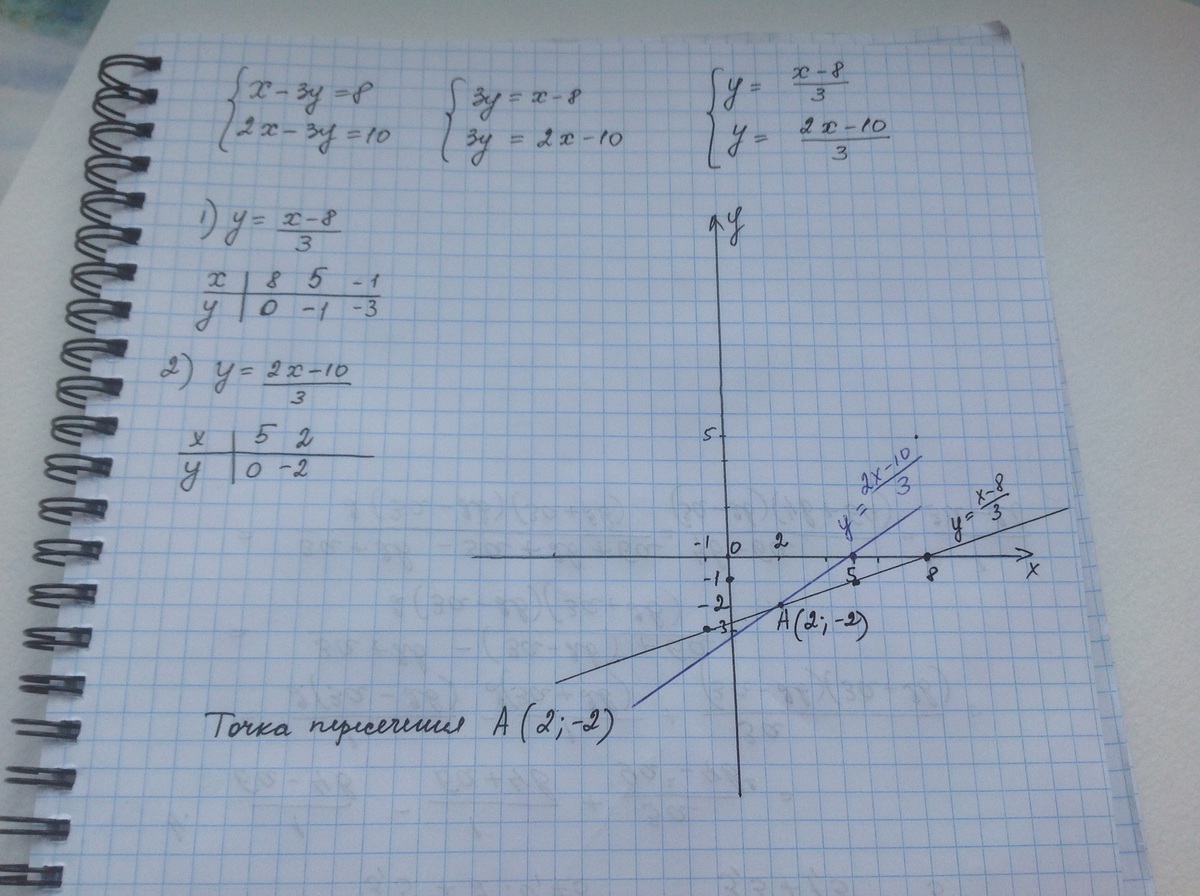 { x - 3y = 8
2x - 3y = 10
{ 3y = x - 8
3y = 2x - 10
{ y = (x-8)/3
y = (2x-10)/3
1) y = (x-8)/3
x | 8 5 -1
y | 0 -1 -3
2) y = (2x-10)/3
x | 5 2
y | 0 -2
y
5
y = (2x-10)/3
y = (x-8)/3
-1 0 2 5 8 x
-1
-2
-3
A(2;-2)
Точка пересечения A(2;-2)